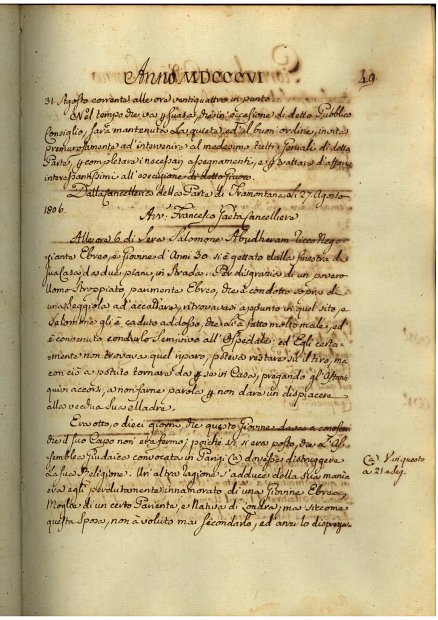 Anno MDCCCVI
49
31. Agosto corrente alle ore ventiquattro in punto
Nel tempo che va persuasa, che in occasione di detto Pubblico
Consiglio, sarà mantenuta la quiete, ed il buon ordine, invita
premurosamente ad intervenire al medesimo tutti i soriali di detta
Parte, per completare i necessarj assegnamenti, e per trattare d'affari
interessantissimi all'esecuzione di detto Giuoco.
Dalla Cancelleria della Parte di Tramontana Li 27. Agosto
1806.
Avv. Francesco Gaeta Cancelliere
Alle ore 6 di sera Salomone Abudheram ricco Nego
ziante Ebreo, e Giovane d'Anni 30. si è gettato dalla finestra di
sua Casa da due piani, in Strada. Per disgrazia di un povero
Uomo stroppiato parimente Ebreo, che è condotto sopra di
una seggiola ad accattare, ritrovavasi appunto in quel sito, e
Salomone gli è caduto addosso, che si è fatto molto male, ed
è convenuto condurlo semivivo all'Ospedale; ed Egli certa-
mente non trovava quel riparo, poteva restare sul tiro, ma
con ciò a potuto tornare da per se in Casa, pregando gl'Astan
quivi accorsi, a non farne parola per non dare un dispiacere
alla vecchia sua Madre.
Era otto, o dieci giorni, che questo Giovane dava a conoscere
che il suo Capo non era fermo; poiché vi si era posto, che l'As-
semblea Giudaica convocata in Parigi (a) dovesse distruggere
la sua Religione. Un'altra ragione s'adduce della sua mania
era egli perdutamente innamorato di una Giovane Ebrea,
Moglie di un certo Pariente, e Nativa di Londra; ma siccome
questa Sposa, non à voluto mai secondarlo, ed anzi lo disprez-
(a) V. in questo
a 21. e seg.